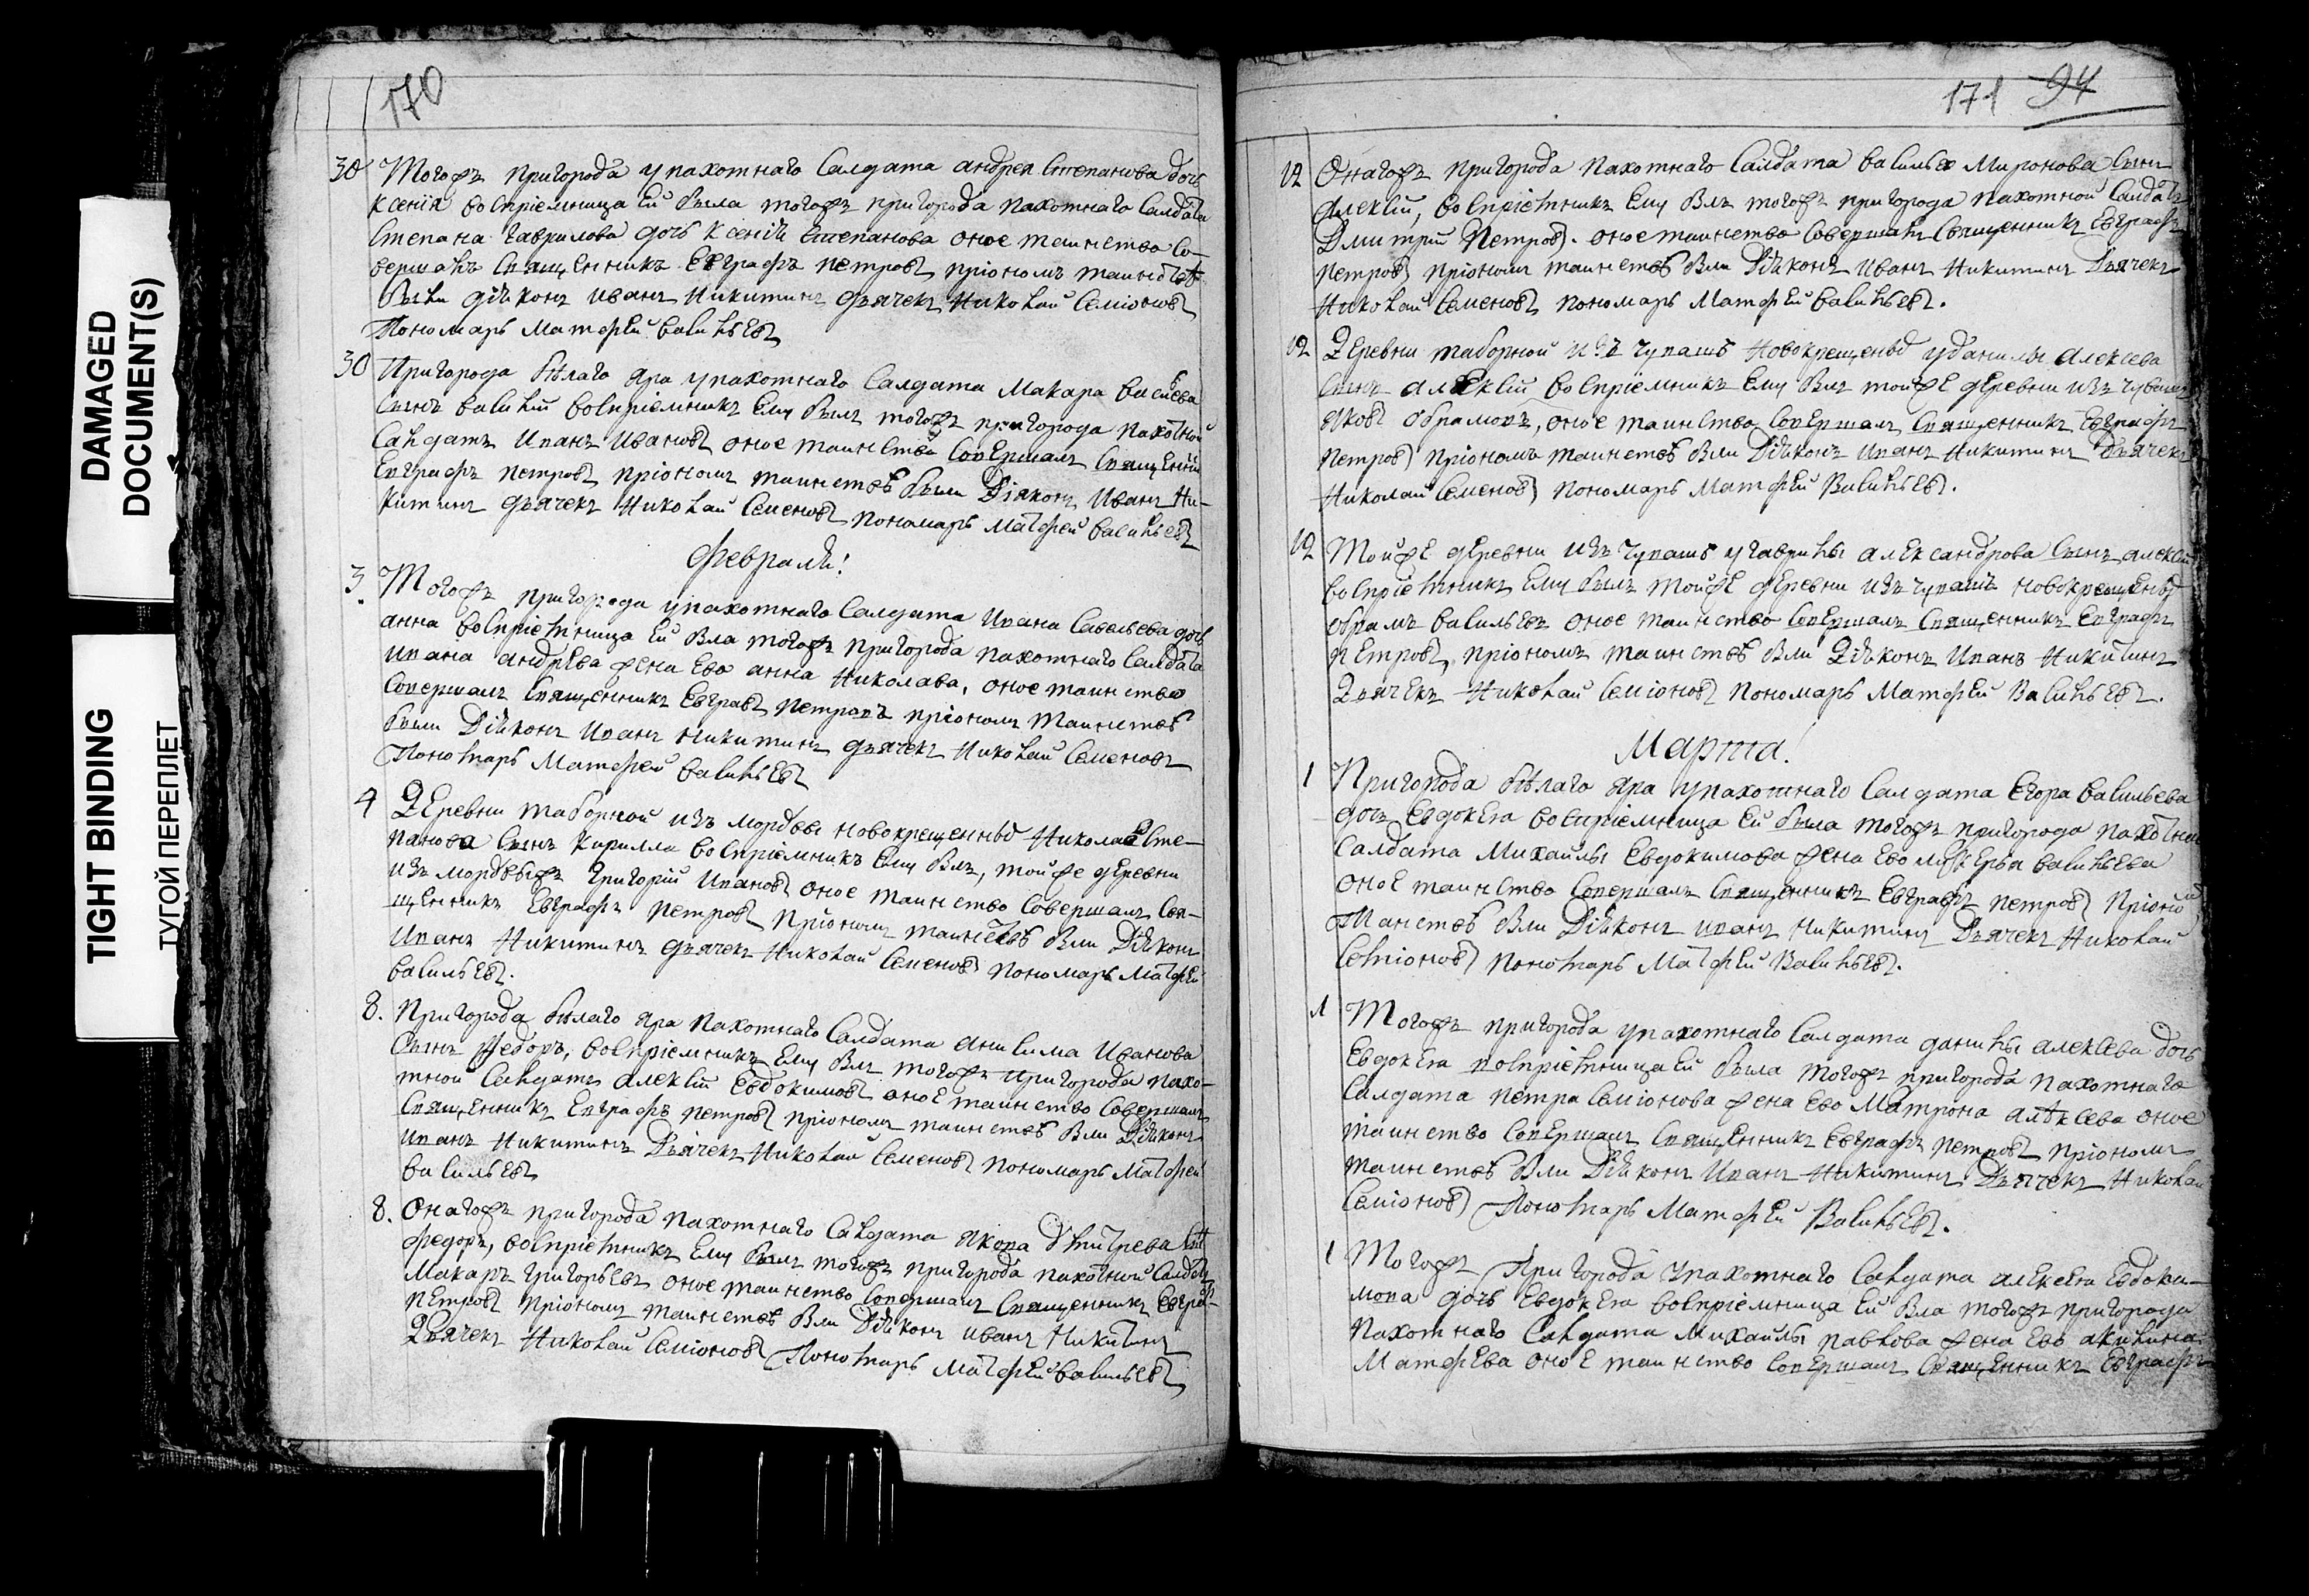 DAMAGED
DOCUMENT(S)
TIGHT BINDING
ТУГОЙ ПЕРЕПЛЕТ
170
30 Тогожъ пригорода упахотнаго Салдата андрея Степанова дочь
Ксенiя воспрiемница Ей была тогожъ пригорода пахотнаго Салдата
Степана гаврилова дочь Ксенiя Степанова оное таинство Со-
вершалъ Священникъ Евграфъ петровъ прiономъ таинстве
были дiяконъ иванъ Никитинъ дьячекъ Николай Семiоновъ
Пономарь Матфей василъевъ
30 Пригорода бѣлаго Яра упахотнаго Салдата Макара
Сынъ василiй воспрiемникъ Ему былъ тогожъ пригорода пахотной
Салдатъ Иванъ Ивановъ оное таинство Совершалъ
Евграфъ петровъ прiономъ таинствѣ были Дiяконъ Иванъ Ни-
китинъ дьячекъ Николай Семеновъ пономарь Матфей василъевъ
Февраля!
3. Тогожъ пригорода упахотнаго Салдата Ивана Савельева дочь
анна воспрiемница Ей бла тогожъ пригорода пахотнаго Салдата
ивана андрѣва жена Ево анна Николава, оное таинство
Совершалъ Священникъ Евгравъ петровъ прiономъ таинствѣ
были Дiяконъ Иванъ Никитинъ дьячекъ Николай Семеновъ
Пономарь Матфей василъевъ
4 Деревни таборной изъ мордвы новокрещенныѣ Николая Сте-
панова Сынъ Кирилла воспрiемникъ Ему блъ, тойже деревни
изъ мордвыжъ Григорiй Ивановъ оное таинство Совершалъ Свя-
щенникъ Евграфъ петровъ прiономъ таинствѣ бли Дiяконъ
Иванъ Никитинъ дьячекъ Николай Семеновъ пономарь Матфей
василъевъ.
8. Пригорода бѣлаго яра пахотнаго Салдата анисима Иванова
Сынъ Федоръ, воспрiемникъ Ему блъ тогожъ пригорода пахо-
тной Салдатъ алексiй Евдокимовъ оное таинство Совершалъ
Священникъ Евграфъ петровъ прiономъ таинствѣ бли Дiяконъ
Иванъ Никитинъ Дьячекъ Николай Семеновъ пономарь Матфей
василъевъ
8. Онагожъ пригорода пахотнаго Салдата якова Дмитрева
Федоръ, воспрiемникъ Ему былъ тогожъ пригорода пахотной Салдатъ
Макаръ григорьевъ оное таинство Совершалъ Священникъ Евграфъ
петровъ прiономъ таинствѣ бли Дiяконъ иванъ Никитинъ
Дьячекъ Николай Семiоновъ Пономарь Матфей василъевъ
171 94
12 Онагожъ пригорода пахотнаго Салдата василья Миронова Сынъ
Алексiй, воспрiемникъ Ему блъ тогожъ пригорода пахотной Салдатъ
Дмитрiй Петровъ. оное таинство Совершалъ Священникъ Евграфъ
петровъ прiономъ таинствѣ бли Дiяконъ Иванъ Никитинъ Дьячекъ
Николай Семеновъ пономарь Матфей василъевъ.
12 Деревни таборной изъ чувашъ Новокрещеныѣ уданилы алексева
Сынъ алексiй воспрiемникъ Ему блъ тойже деревни изъ чувашъ
яковъ обрамовъ, оное таинство Совершалъ Священникъ Евграфъ
петровъ прiономъ таинствѣ бли Дiяконъ Иванъ Никитинъ Дьячекъ
Николай Семеновъ пономарь Матфей Василъевъ.
12 Тойже деревни изъ чувашъ угаврилы александрова Сынъ алексiй
воспрiемникъ Ему былъ тойже деревни изъ чувашъ новокрещеныѣ
обрамъ василъевъ оное таинство Совершалъ Священникъ Евграфъ
петровъ, прiономъ таинствѣ бли Дiяконъ Иванъ Никитинъ
Дьячекъ Николай Семiоновъ Пономарь Матфей Василъевъ.
Марта!
1 Пригорода бѣлаго яра упахотнаго Салдата Егора васильева
дочь Евдокея воспрiемница Ей была тогожъ пригорода
Салдата Михайлы Евдокимова жена Ево васильева
оное таинство Совершалъ Священникъ Евграфъ петровъ прiономъ
Таинствѣ бли Дiяконъ иванъ Никитинъ Дьячекъ Николай
Семiоновъ пономарь Матфей Василъевъ.
1 Тогожъ пригорода упахотнаго Салдата данилы алексева дочь
Евдокея воспрiемница Ей была тогожъ пригорода пахотнаго
Салдата петра Семiонова жена Ево Матрона алѣксева оное
таинство Совершалъ Священникъ Евграфъ петровъ прiономъ
таинствѣ бли Дiяконъ Иванъ Никитинъ Дьячекъ Николай
Семiоновъ Пономарь Матфей Василъевъ.
1 Тогожъ Пригорода упахотнаго Салдата алексея Евдоки-
мова дочь Евдокея воспрiемница Ей бла тогожъ пригорода
пахотнаго Салдата Михайлы павлова жена Ево акилина
Матфева оное таинство Совершалъ Священникъ Евграфъ